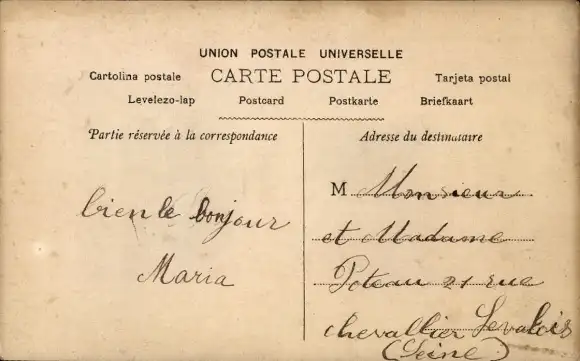 UNION POSTALE UNIVERSELLE
Cartolina postale CARTE POSTALE Tarjeta postal
Levelezo-lap Postcard Postkarte Briefkaart
Partie réservée à la correspondance
bien le bonjour
Maria
Adresse du destinataire
M Monsieur
et Madame
Poteau 21 rue
chevallier Levallois
(Seine)